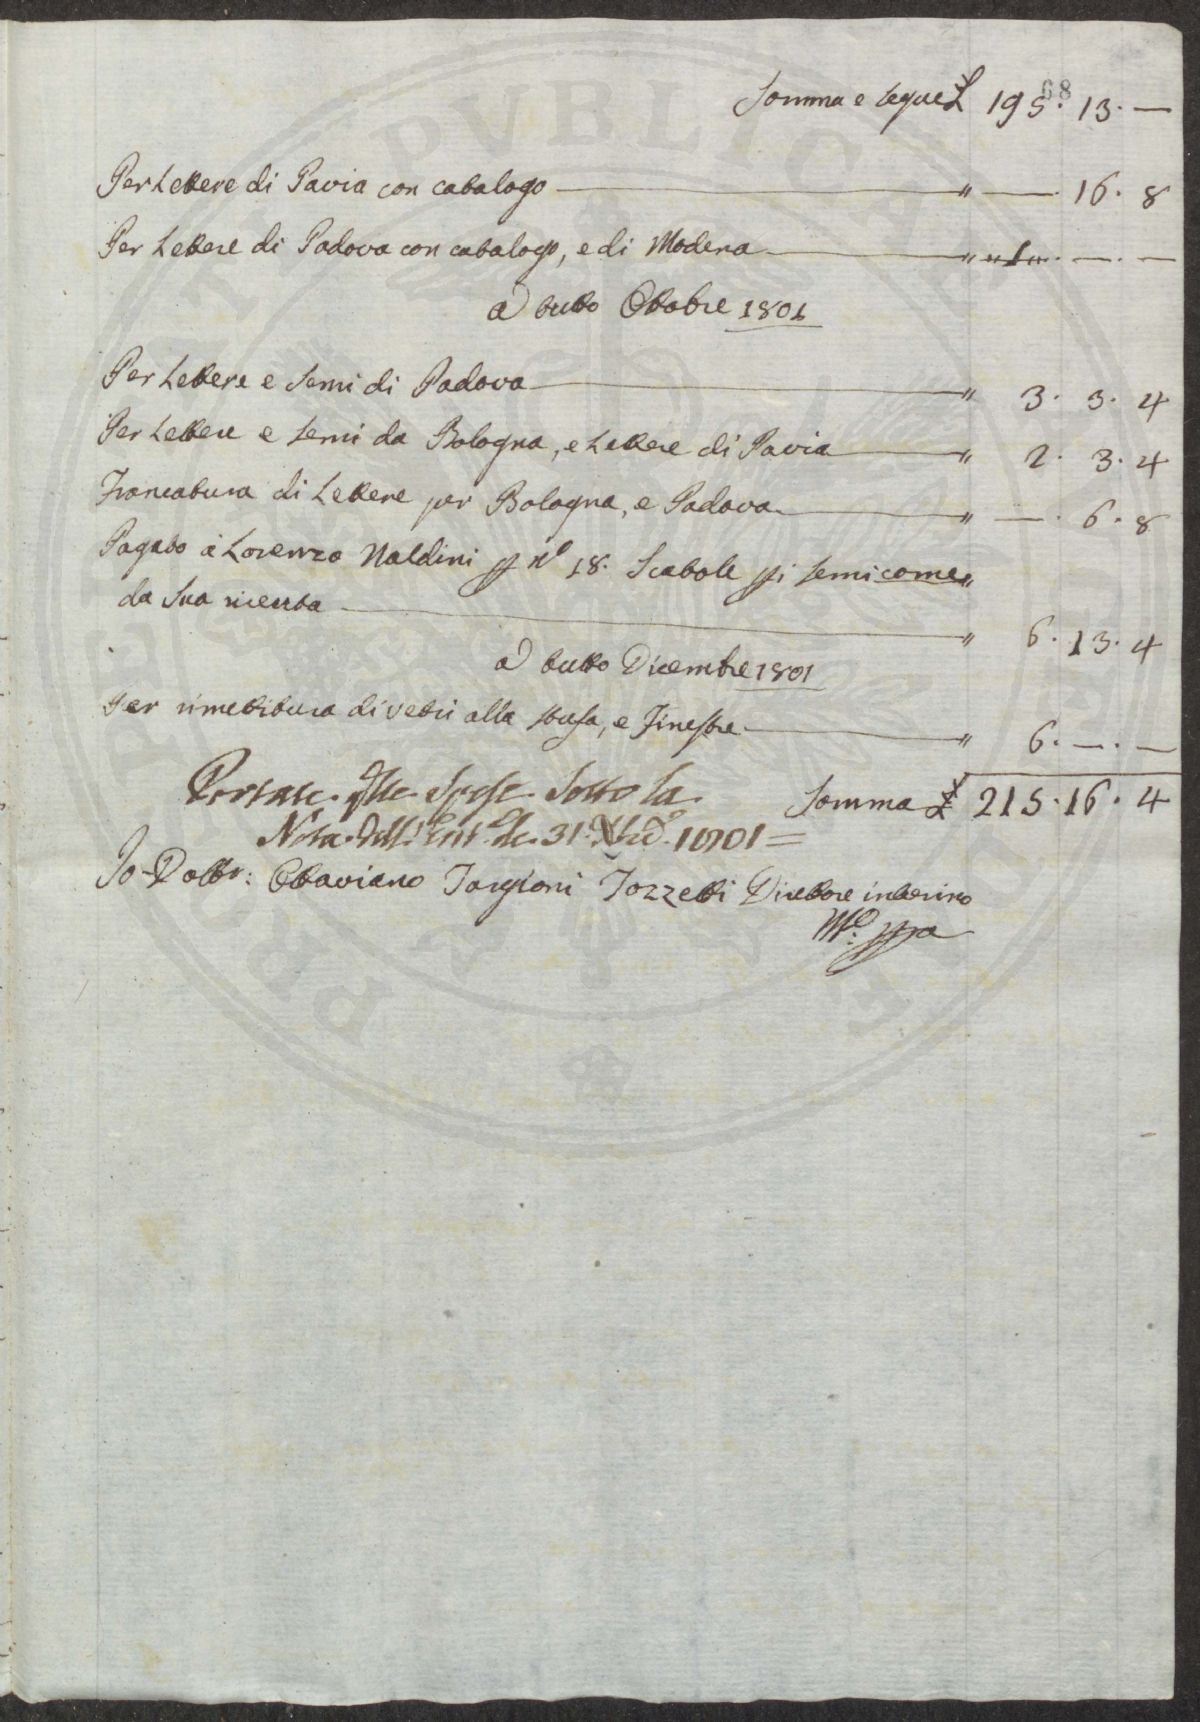 68
Somma e segue £ 195. 13. —
Per Lettere di Pavia con catalogo — " —. 16. 8
Per Lettere di Padova con catalogo, e di Modena — " 1. —. —
a tutto Ottobre 1801
Per Lettere e Semi di Padova — " 3. 3. 4
Per Lettere e Semi da Bologna, e Lettere di Pavia — " 2. 3. 4
Francatura di Lettere per Bologna, e Padova — " —. 6. 8
Pagato a Lorenzo Naldini p n.o 18. Scatole pi semi come
da Sua ricevuta — " 6. 13. 4
a tutto Dicembre 1801
Per rimettitura di vetri alla stufa, e Finestre — " 6. —. —
Somma £ 215. 16. 4
Portate Spese Sotto la
Nota 31. 1801 =
Io Dottr: Ottaviano Targioni Tozzetti Direttore interino
Mo: ppa